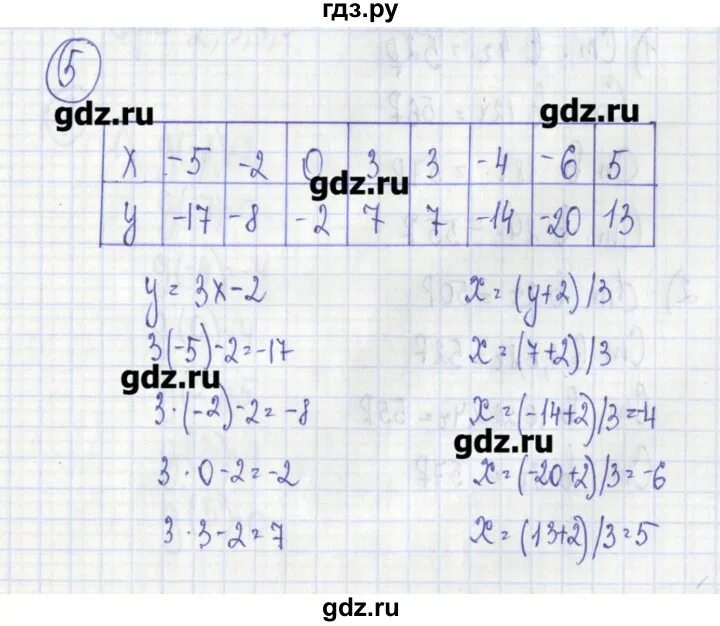 гдз.ру
5
gdz.ru
gdz.ru
x -5 -2 0 3 3 -4 -6 5
gdz.ru
y -17 -8 -2 7 7 -14 -20 13
y = 3x-2
x = (y+2)/3
3(-5)-2=-17
x = (7+2)/3
gdz.ru
3·(-2)-2=-8
x = (-14+2)/3=-4
gdz.ru
3·0-2=-2
x = (-20+2)/3=-6
3·3-2=7
x = (13+2)/3=5
gdz.ru